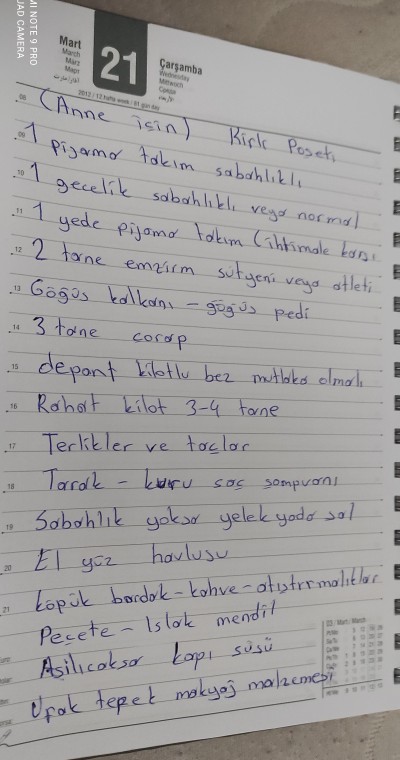 MI NOTE 9 PRO
UAD CAMERA
Mart
March
März
Март
21
Çarşamba
Wednesday
Mittwoch
Среда
2012 / 12.hafta week / 81.gün day
08 (Anne için) Kirli Poşeti
09 1 pijama takım sabahlıklı
10 1 gecelik sabahlıklı veya normal
11 1 yede pijama takım (ihtimale karşı
12 2 tane emzirm sütyeni veya atleti
13 Göğüs kalkanı - göğüs pedi
14 3 tane çorap
15 depant kilotlu bez mutlaka olmalı
16 Rahat kilot 3-4 tane
17 Terlikler ve taçlar
18 Tarak - kuru saç şampuanı
19 Sabahlık yoksa yelek yada şal
20 El yüz havlusu
21 köpük bardak - kahve - atıştırmalıklar
Peçete - Islak mendil
Asılıcaksa kapı süsü
Ufak tepek makyaj malzemesi
03 / Mart / March